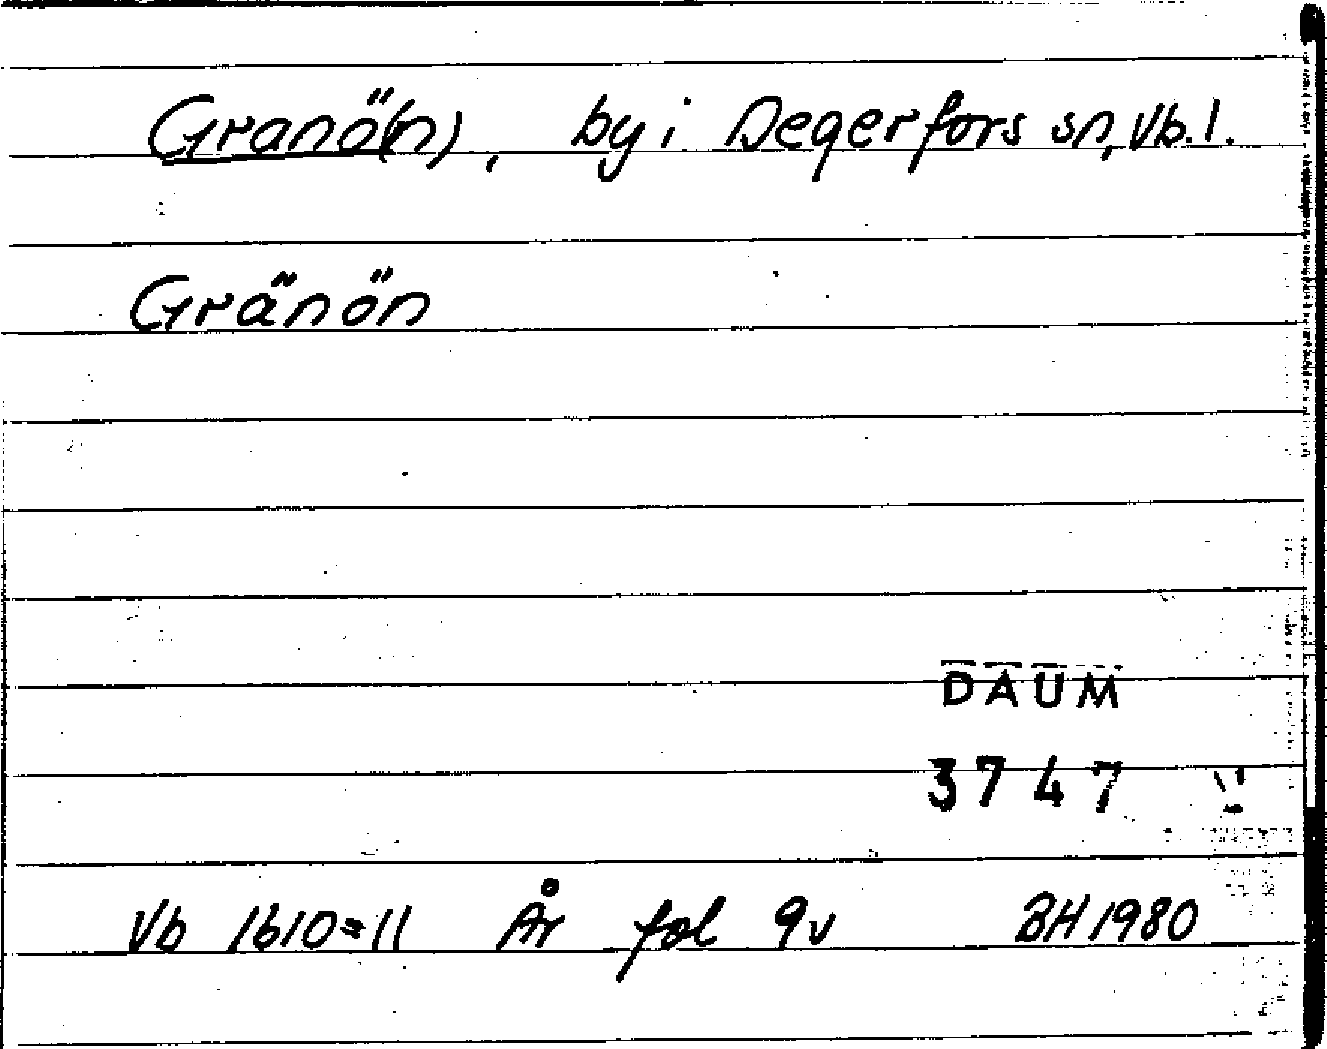 Granö(n), by i Degerfors sn, Vb. l.
Gränön
DAUM
3747
Vb 1610=11 År fol 9v BH 1980